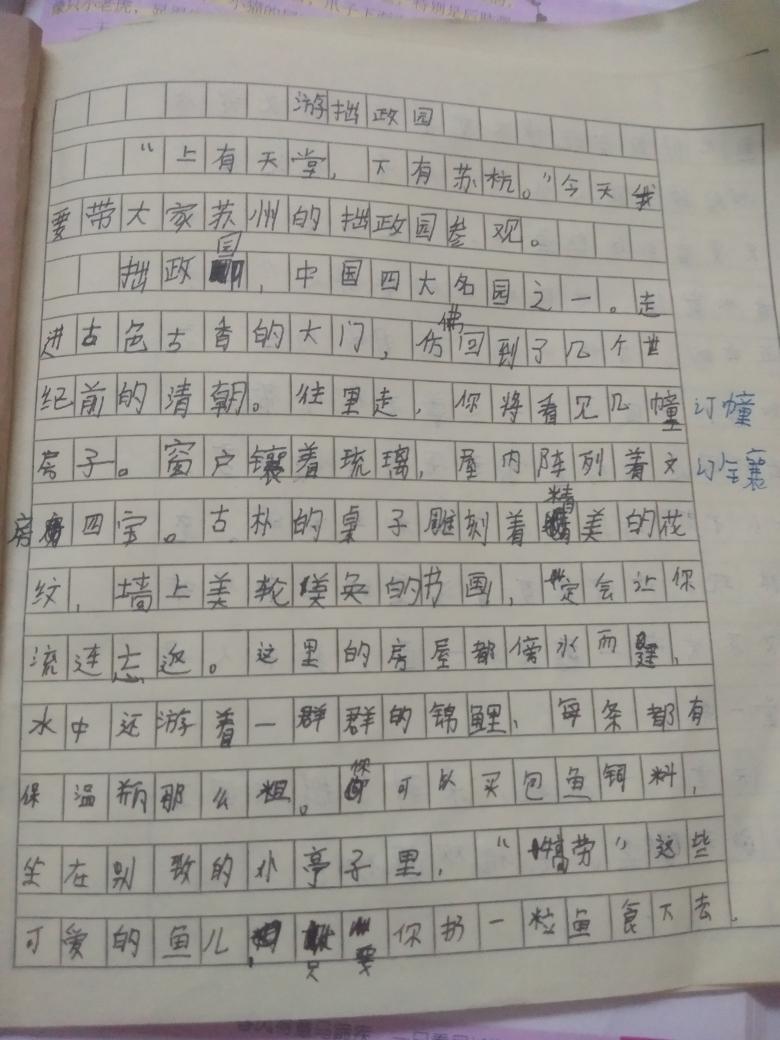 像只小老虎,
游拙政园
“上有天堂,下有苏杭。”今天我
要带大家苏州的拙政园参观。
拙政园,中国四大名园之一。走
进古色古香的大门,仿佛回到了几个世
纪前的清朝。往里走,你将看见几幢 订幢
房子。窗户镶着琉璃,屋内陈列着文 订镶
房四宝。古朴的桌子雕刻着精美的花
纹,墙上美轮美奂的书画,一定会让你
流连忘返。这里的房屋都傍水而建,
水中还游着一群群的锦鲤,每条都有
保温瓶那么粗。你可以买包鱼饵料,
坐在别致的小亭子里,“犒劳”这些
可爱的鱼儿,只要你扔一粒鱼食下去,